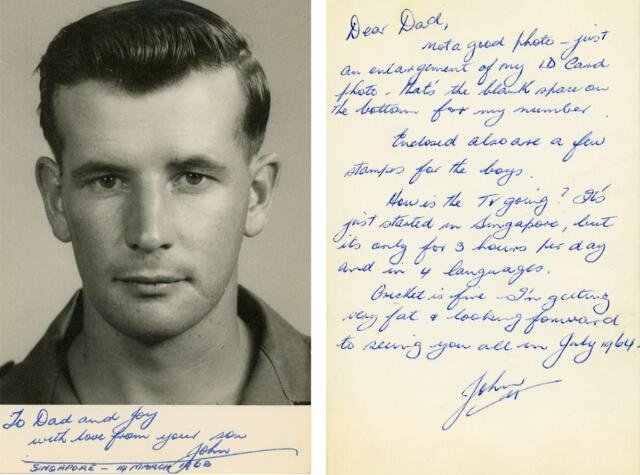 To Dad and Joy
with love from your son
John
SINGAPORE - 14 MARCH 1963
Dear Dad,
not a good photo - just
an enlargement of my ID Card
photo - that's the blank space on
the bottom for my number.
Enclosed also are a few
stamps for the boys.
How is the TV going? It's
just started in Singapore, but
its only for 3 hours per day
and in 4 languages.
Cricket is fine - I'm getting
very fat & looking forward
to seeing you all in July 1964.
John